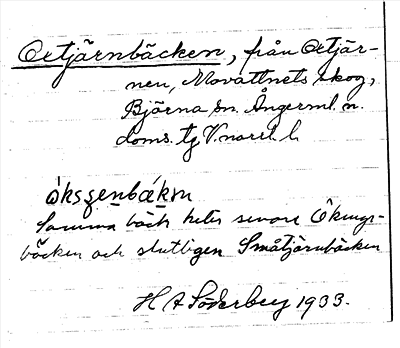 Oxtjärnbäcken, från Oxtjär-
nen, Movattnets skog,
Björna sn. Ångerml. n.
doms. tg V.norrl. l.
Samma bäck heter senare Ökings-
bäcken och slutligen Småtjärnbäcken
H A Söderberg 1933.